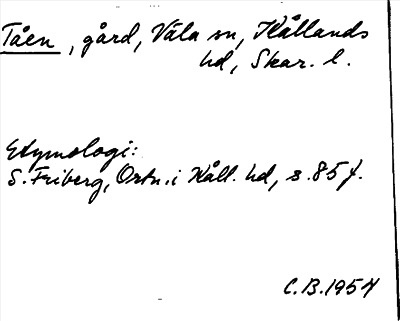 Tåen, gård, Väla sn, Kållands
hd, Skar. l.
Etymologi:
S. Friberg, Ortn. i Kåll. hd, s. 85 f.
C.B. 1954